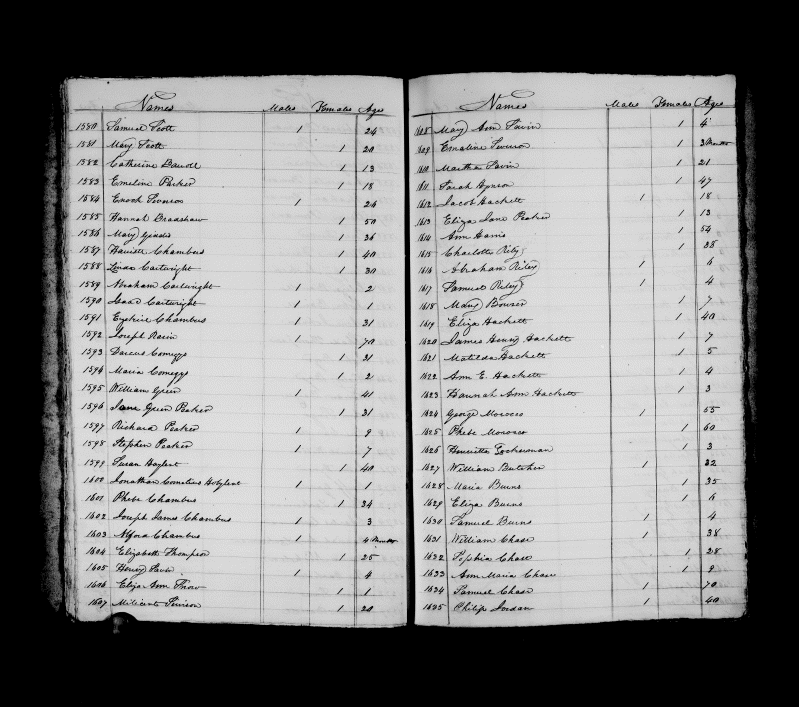 Names Males Females Ages
1580 Samuel Scott 1 24
1581 Mary Scott 1 20
1582 Catherine 1 13
1583 Emeline Parker 1 18
1584 Enoch 1 24
1585 Hannah Bradshaw 1 50
1586 Mary 1 36
1587 Harriett Chambus 1 40
1588 Linda Cartwright 1 30
1589 Abraham Cartwright 1 2
1590 Isaac Cartwright 1 1
1591 Ezekiel Chambus 1 31
1592 Joseph 1 70
1593 Darcus Comegys 1 31
1594 Maria Comegys 1 2
1595 William Green 1 41
1596 Jane Green Peaker 1 31
1597 Richard Peaker 1 9
1598 Stephen Peaker 1 7
1599 Susan 1 40
1600 Jonathan Cornelius 1 1
1601 Phebe Chambus 1 34
1602 Joseph James Chambus 1 3
1603 Alford Chambus 1 4 Months
1604 Elizabeth Thompson 1 25
1605 Henry 1 4
1606 Eliza Ann 1 1
1607 Milicent 1 20
Names Males Females Ages
1608 Mary Ann 1 4
1609 Emaline 1 3 Months
1610 Martha 1 21
1611 Sarah Hynson 1 47
1612 Jacob Hackett 1 18
1613 Eliza Jane Peaker 1 13
1614 Ann Harris 1 54
1615 Charlotte Riley 1 38
1616 Abraham Riley 1 6
1617 Samuel Riley 1 4
1618 Mary Bouser 1 7
1619 Eliza Hackett 1 40
1620 James Henry Hackett 1 7
1621 Matilda Hackett 1 5
1622 Ann E. Hackett 1 4
1623 Hannah Ann Hackett 1 3
1624 George Morocco 1 55
1625 Phebe Morocco 1 60
1626 Henrietta Tockerman 1 3
1627 William Butcher 1 32
1628 Maria Burns 1 35
1629 Eliza Burns 1 6
1630 Samuel Burns 1 4
1631 William Chase 1 38
1632 Sophia Chase 1 28
1633 Ann Maria Chase 1 9
1634 Samuel Chase 1 70
1635 Philip Jordan 1 40